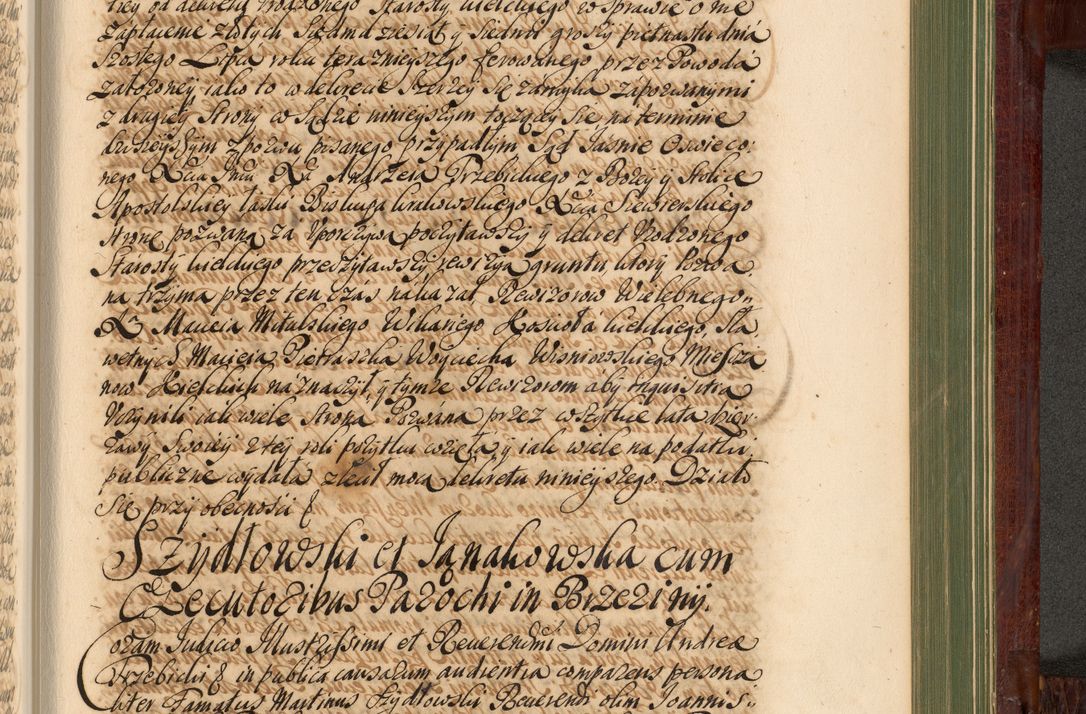 tiey od dekretu Vrodzonego Starosty kieleckiego w Sprawie o nie
zapłacenie złotych Siedmdziesiąt y Siedmi groszy piętnastu dnia
Szostego Lipca roku teraznieyszego ferowanego przez Powoda
załozoney iako to w dekrecie Szerzey Się zamyka zapozwanymi
z drugiey Strony w Sądzie ninieyszym toczącey Się na terminie
dzisieyszym z pozwu pisanego przypadłym Sąd Jasnie Oswieco:
nego Xcia Jmci X Andrzeia Trzebickiego z Bozey y Stolice
Apostolskiey łaski Biskupa krakowskiego Xcia Siewierskiego
Stronę pozwaną za Vporczywą poczytawszy y dekret Vrodzonego
Starosty kieleckiego przeczytawszy rewizyą gruntu ktory Pozwa
na trzyma przez ten czas nakazał Rewizorow Wielebnego
X Macieia Mikulskiego Wikariego Koscioła kieleckiego Sła
wetnych Macieia Pietraszka Woyciecha Wisniowskiego Miescza
now Kieleckich naznaczył, y tymze Rewizorom aby Inquisitia
Vczynili iak wiele Strona Pozwana przez wszytkie lata dzier:
zawy Swoiey z tey roli pozytku wzięła, y iak wiele na podatki
publiczne wydała zlecił mocą dekretu ninieyszego. Działo
Się przy obecnosci &
Szydłowski et Janakowska cum
Executoribus Parochi in Brzeziny.
Coram Judicio Illustrissimi et Reuerendissimi Domini Andreæ
Trzebicki & in publica causarum audientia comparens persona
liter Famatus Martinus Szydłowski Reuerendi olim Joannis